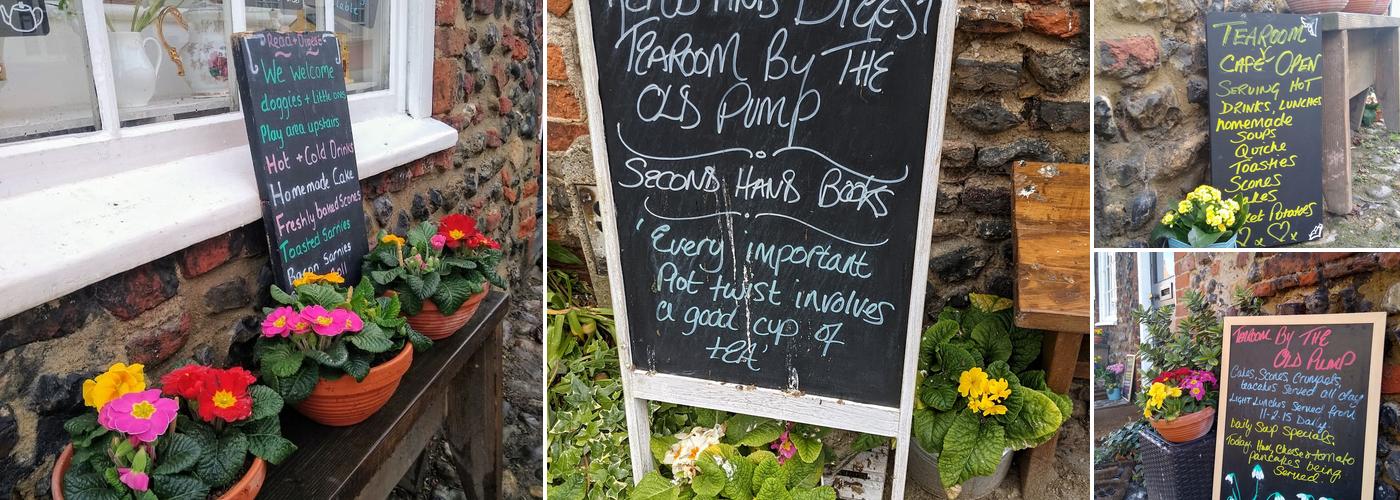 Read + Digest
We Welcome
doggies + Little ones
Play area upstairs
Hot + Cold Drinks
Homemade Cake
Freshly baked Scones
Toasted Sarnies
Bacon Sarnies
READ AND DIGEST
TEAROOM By THE
OLD PUMP
SECOND HAND BOOKS
'Every important
Plot twist involves
a good cup of
tea'
TEAROOM
CAFE OPEN
SERVING HOT
DRINKS, LUNCHES
homemade
soups
Quiche
Toasties
Scones
Cakes
Jacket Potatoes
TEAROOM BY THE
OLD PUMP
Cakes, Scones, Crumpets,
teacakes served all day
LIGHT LUNCHES Served from
11-2.15 Daily.
Daily Soup Specials.
Today Ham, Cheese + tomato
pancakes being
Served.